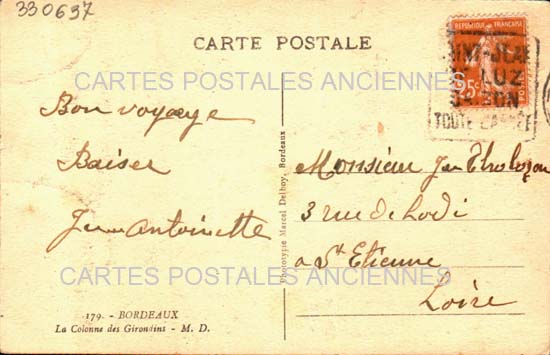 330697
CARTE POSTALE
REPUBLIQUE FRANÇAISE
25c
LUZ
TOUTE L'ANNÉE
CARTES POSTALES ANCIENNES
Bon voyage
Baiser
Jean Antoinette
Monsieur Jean
3 rue de Lodi
a St Etienne
Loire
Phototypie Marcel Delboy, Bordeaux
CARTES POSTALES ANCIENNES
179. - BORDEAUX
La Colonne des Girondins - M. D.